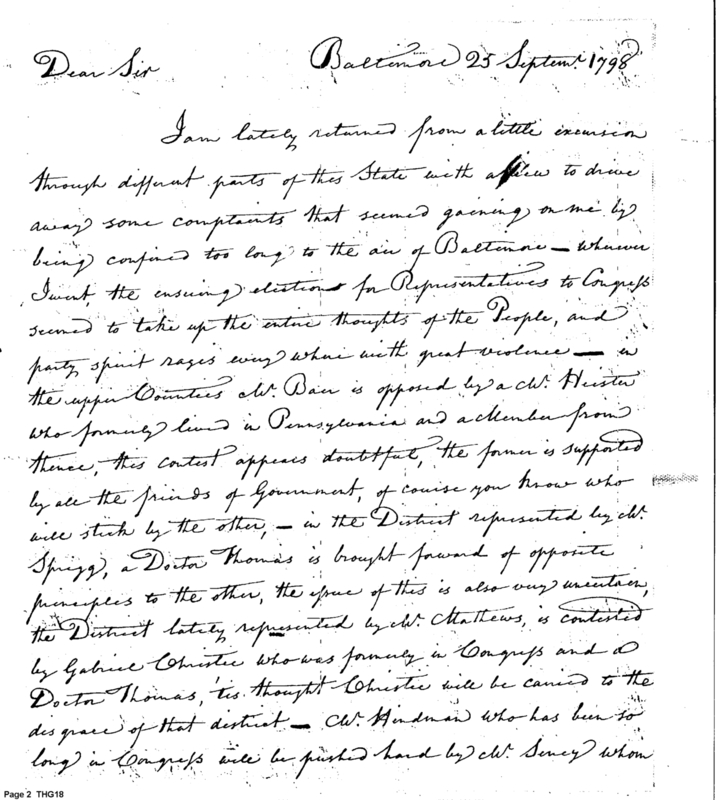 Dear Sir
Baltimore 25 Septemr. 1798
I am lately returned from a little excursion
through different parts of this State with a view to drive
away some complaints that seemed gaining on me by
being confined too long to the air of Baltimore — wherever
I went, the ensuing elections for Representatives to Congress
seemed to take up the entire thoughts of the People, and
party spirit rages every where with great violence — in
the upper Counties Mr. Baer is opposed by a Mr. Heister
who formerly lived in Pennsylvania and a Member from
thence, this contest appears doubtful, the former is supported
by all the friends of Government, of course you know who
will stick by the other, — in the District represented by Mr.
Sprigg, a Doctor Thomas is brought forward of opposite
principles to the other, the issue of this is also very uncertain,
the District lately represented by Mr. Mathews, is contested
by Gabriel Christie who was formerly in Congress and a
Doctor Thomas, 'tis thought Christie will be carried to the
disgrace of that district — Mr. Hindman who has been so
long in Congress will be pushed hard by Mr. Seney whom
Page 2 THG18